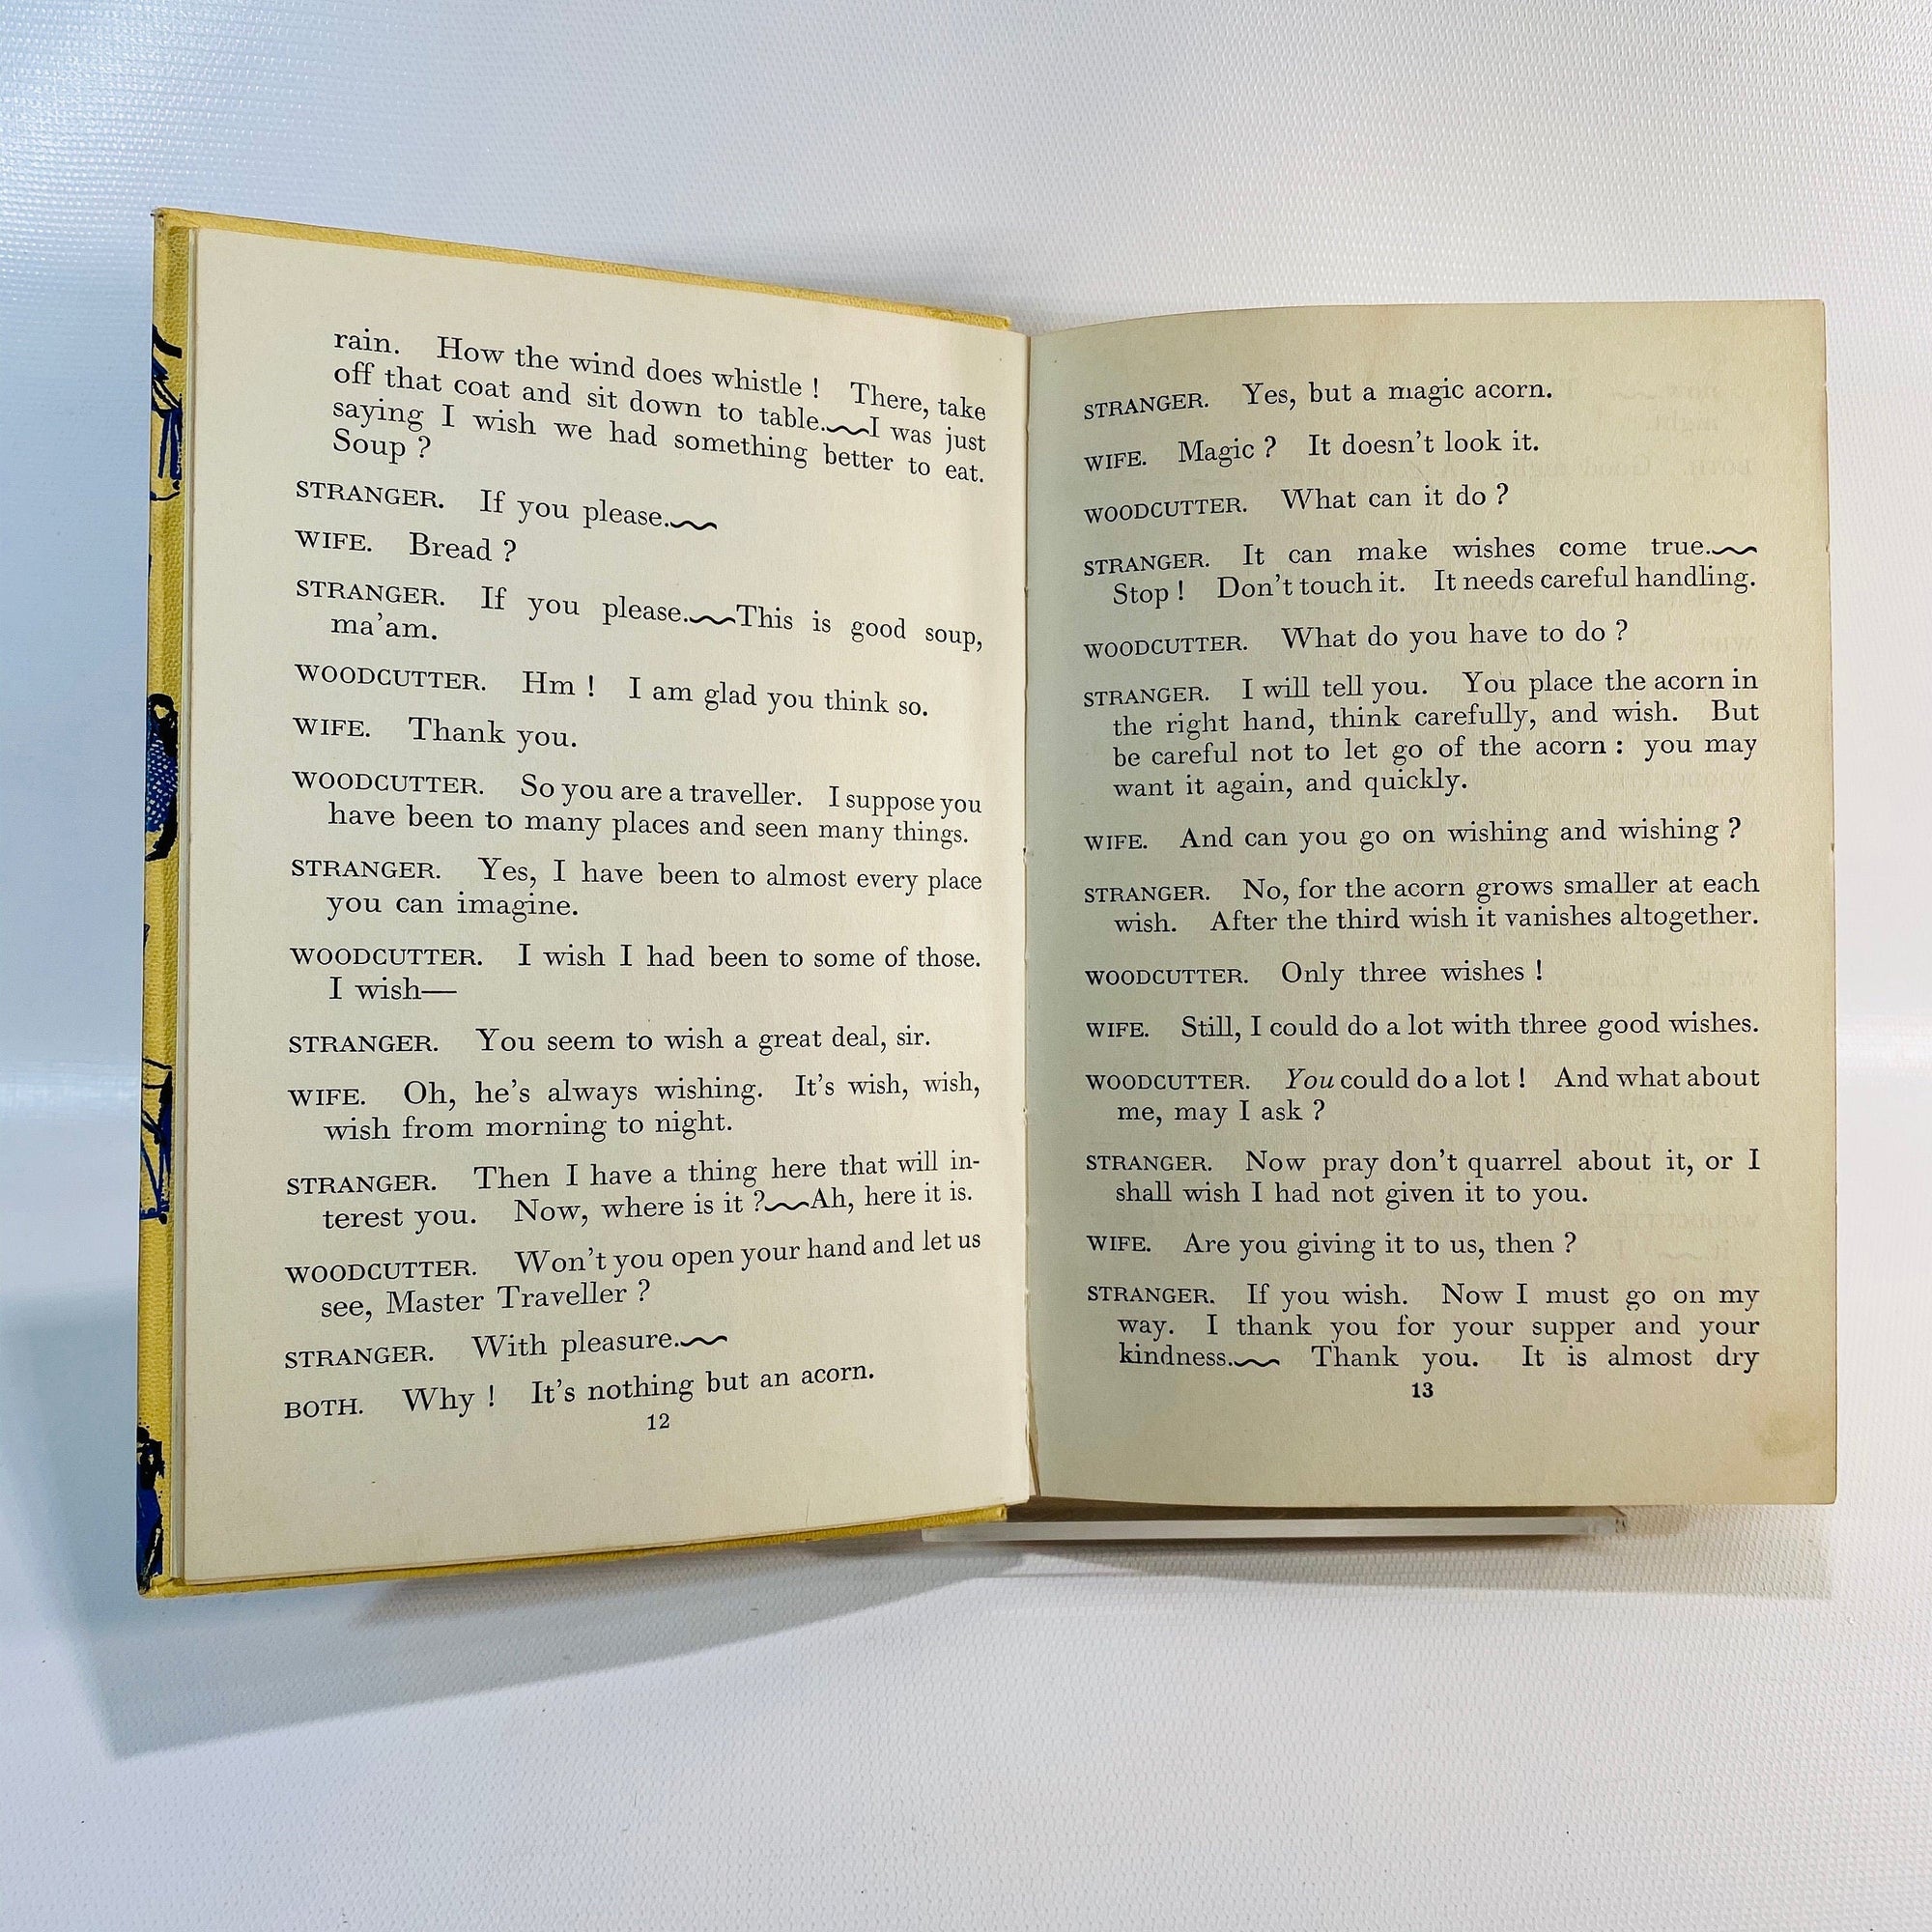 rain. How the wind does whistle ! There, take
off that coat and sit down to table.~~I was just
saying I wish we had something better to eat.
Soup ?
STRANGER. If you please.~~
WIFE. Bread ?
STRANGER. If you please.~~This is good soup,
ma'am.
WOODCUTTER. Hm ! I am glad you think so.
WIFE. Thank you.
WOODCUTTER. So you are a traveller. I suppose you
have been to many places and seen many things.
STRANGER. Yes, I have been to almost every place
you can imagine.
WOODCUTTER. I wish I had been to some of those.
I wish—
STRANGER. You seem to wish a great deal, sir.
WIFE. Oh, he's always wishing. It's wish, wish,
wish from morning to night.
STRANGER. Then I have a thing here that will in-
terest you. Now, where is it ?~~Ah, here it is.
WOODCUTTER. Won't you open your hand and let us
see, Master Traveller ?
STRANGER. With pleasure.~~
BOTH. Why ! It's nothing but an acorn.
12
STRANGER. Yes, but a magic acorn.
WIFE. Magic ? It doesn't look it.
WOODCUTTER. What can it do ?
STRANGER. It can make wishes come true.~~
Stop ! Don't touch it. It needs careful handling.
WOODCUTTER. What do you have to do ?
STRANGER. I will tell you. You place the acorn in
the right hand, think carefully, and wish. But
be careful not to let go of the acorn : you may
want it again, and quickly.
WIFE. And can you go on wishing and wishing ?
STRANGER. No, for the acorn grows smaller at each
wish. After the third wish it vanishes altogether.
WOODCUTTER. Only three wishes !
WIFE. Still, I could do a lot with three good wishes.
WOODCUTTER. You could do a lot ! And what about
me, may I ask ?
STRANGER. Now pray don't quarrel about it, or I
shall wish I had not given it to you.
WIFE. Are you giving it to us, then ?
STRANGER. If you wish. Now I must go on my
way. I thank you for your supper and your
kindness.~~ Thank you. It is almost dry
13